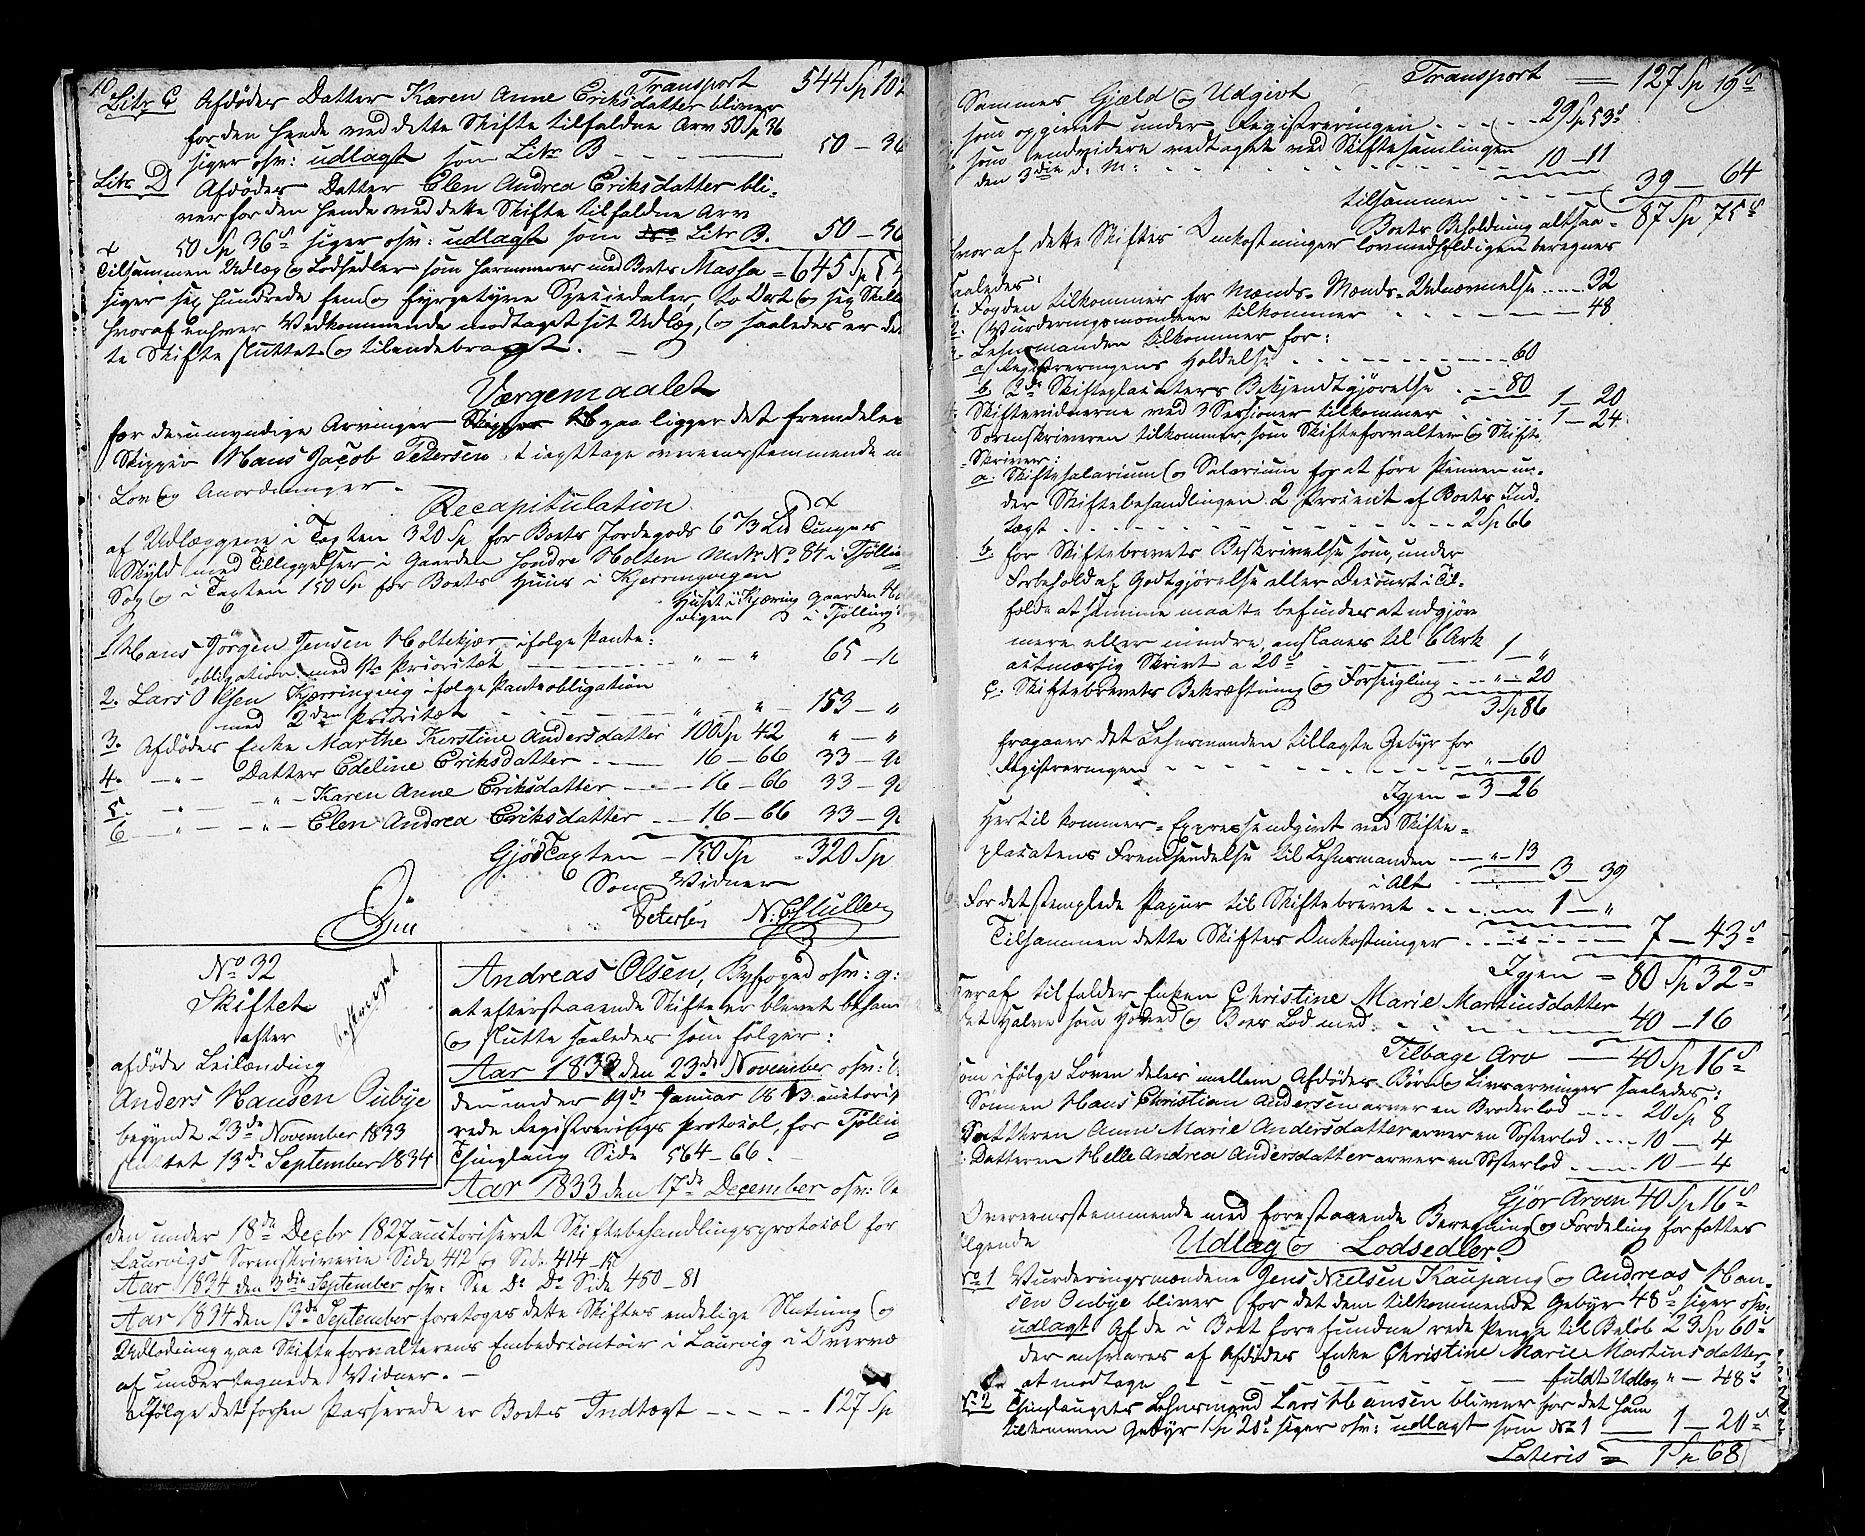 10.
Transport 544 Sp 102
Litr C Afdødes Datter Karen Anne Eriksdatter bliver
for den hende med dette Skifte tilfaldne Arv 50 Sp 36
siger osv: udlagt som Litr B 50 – 36
Litr D Afdødes Datter Elen Andrea Eriksdatter bli-
ver for den hende med dette Skifte tilfaldne Arv
50 Sp 36 s siger osv: udlagt som Litr B. 50 – 36
Tilsammen Udlæg og Lodsedler som harmonerer med Boets Massa = 645 Sp 54
siger sex hundrede fem og fyrgetyve Speciedaler, to Ort og sex Skill
hvoraf enhver Vedkommende modtaget sit Udlæg, og saaledes er det
te Skifte sluttet og tilendebragt. –
Værgemaalet
for de umyndige Arvinger paa ligger det fremdeles
Skipper Hans Jacob Petersen iagttage overeensstemmende m
Lov og Anordninger.
Recapitulation
af Udlæggene i Taxten 320 Sp for Boets Jordegods 6 2/3 Lid Tunges
Skyld med Tilliggelser i Gaarden søndre Holten Matr No 84 i Tjølling
Sog og i Taxten 150 Sp for Boets Huus i Kjerringvigen
Huset i Kjæring gaarden Ho
vigen i Tjølling
1 Hans Jørgen Jensen Holtekjær, ifølge Pante-
obligation med 1ste Prioritet " – " 65 – 1
2. Lars Olsen Kjærringvig ifølge Panteobligation
med 2den Prioritet " – " 153 – "
3. Afdødes Enke Marthe Kirstine Andersdatter 100 Sp 42 " – "
4. – " – Datter Edeline Eriksdatter 16 – 66 33 – 9
5. – " – – " – Karen Anne Eriksdatter 16 – 66 33 – 9
6 – " – – " – Elen Andrea Eriksdatter 16 – 66 33 – 9
Gjør Taxten – 150 Sp = 320 Sp
Som Vidner
Petersen N. C. Muller
No 32
Skiftet
efter
afdøde Leilænding
Anders Hansen Oubye
begyndt 23de November 1833
sluttet 13de September 1834
Andreas Olsen, Byfoged osv: g:
at efterstaaende Skifte er blevet behan
og sluttet saaledes som følger:
Aar 1833 den 23de November osv:
den under 19de Januar 1813 autoris
rede Registrerings protocol, for Tjølling
Thinglaug Side 564 – 66. –
Aar 1833 den 17de December osv: Se
den under 18de Decbr 1827 autoriseret Skiftebehandlingsprotocol for
Laurvigs Sorenskriverie Side 412 og Side 414 – 15
Aar 1834 den 3die September osv: See Do Do Side 450 – 81
Aar 1834 den 13de September foretoges dette Skiftes endelige Slutning og
Udlodning paa Skifteforvalterens Embedscontoir i Laurvig i Overvæ
af undertegnede Vidner. –
Ifølge det forhen Passerede er Boets Indtægt 127 Sp
Transport = 127 Sp 19 s
Sammes Gjæld og Udgivt
som opgivet under Registreringen 29 Sp 53 s
som endvidere vedtaget ved Skiftesamlingen
den 3die d. M: 10 – 11
tilsammen 39 – 64
Boets Beholdning altsaa – 87 Sp 75 s
hvoraf dette Skiftes Omkostninger lovmedholdigen beregnes
saaledes:
1. Fogden tilkommer for Mænds-Mænds-Udnævnelse 32
2. Vurderingsmændene tilkommer 48
Lehnsmanden tilkommer for:
a. Registreringens Holdelse 60
b. 2de Skifteplacaters Bekjendtgjørelse 80 1 – 20
Skiftevidnerne ved 3 Sessioner tilkommer 1 – 24
Sorenskriveren tilkommer, som Skifteforvalter og Skifte-
Skriver:
a. Skiftesalarium og Salarium for at føre Pennen un-
der Skiftebehandlingen 2 Procent af Boets Ind-
tægt 2 Sp 66
b. for Skiftebrevets Beskrivelse som, under
Forbehold af Godtgjørelse eller Decourt i Til-
fælde at samme maatte befindes at udgjøre
mere eller mindre, anslaaes til 6 Ark
autmæssig Skrivt a 20 s 1 – "
c. Skiftebrevets Bekræftning og Forsegling " – 20
3 Sp 86
fragaaer det Lehnsmanden tillagte Gebyr for
Registreringen " – 60
Igjen = 3 – 26
Hertil kommer Expressudgivt ved Skifte-
placatens Fremsendelse til Lehnsmanden " – 13
i Alt 3 – 39
For det stemplede Papiir til Skiftebrevet 1 – "
Tilsammen dette Skiftes Omkostninger 7 – 43 s
Igjen = 80 Sp 32 s
heraf tilfalder Enken Christine Marie Martinsdatter
det Halve som Hoved og Boes Lod med 40 – 16
Tilbage Arv 40 Sp 16 s
som ifølge Loven deles mellem Afdødes Børn og Livsarvinger saaledes:
Sønnen Hans Christian Andersen arver en Broderlod 20 Sp 8
Datteren Anne Marie Andersdatter arver en Søsterlod 10 – 4
Datteren Helle Andrea Andersdatter arver en Søsterlod 10 – 4
Gjør Arven 40 Sp 16 s
Overeensstemmende med forestaaende Beregning og Fordeling forfattes
følgende
Udlæg og Lodsedler
No 1 Vurderingsmændene Jens Nielsen Kaupang og Andreas Han-
sen Oubye bliver for det dem tilkommende Gebyr 48 s siger osv:
udlagt Af de i Boet forefundne rede Penge til Beløb 23 Sp 60 s
der ansvares af Afdødes Enke Christine Marie Martinsdatter,
at modtage fuldt Udlæg " – 48 s
No 2 Thinglaugets Lehnsmand Lars Hansen bliver for det ham
tilkommen Gebyr 1 Sp 20 s siger osv: udlagt som No 1 1 – 20 s
Lateris = 1 Sp 68